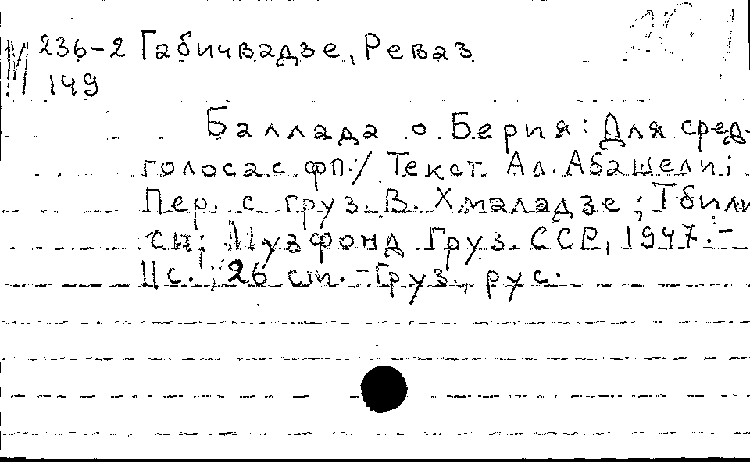 М 236-2 Габичвадзе, Реваз
149
Баллада о Берия: Для сред.
голоса с фп./ Текст Ал. Абашели;
Пер. с груз. В. Хмаладзе; Тбили
си; Музфонд Груз. ССР, 1947.-
11 с.; 26 см.- Груз., рус.